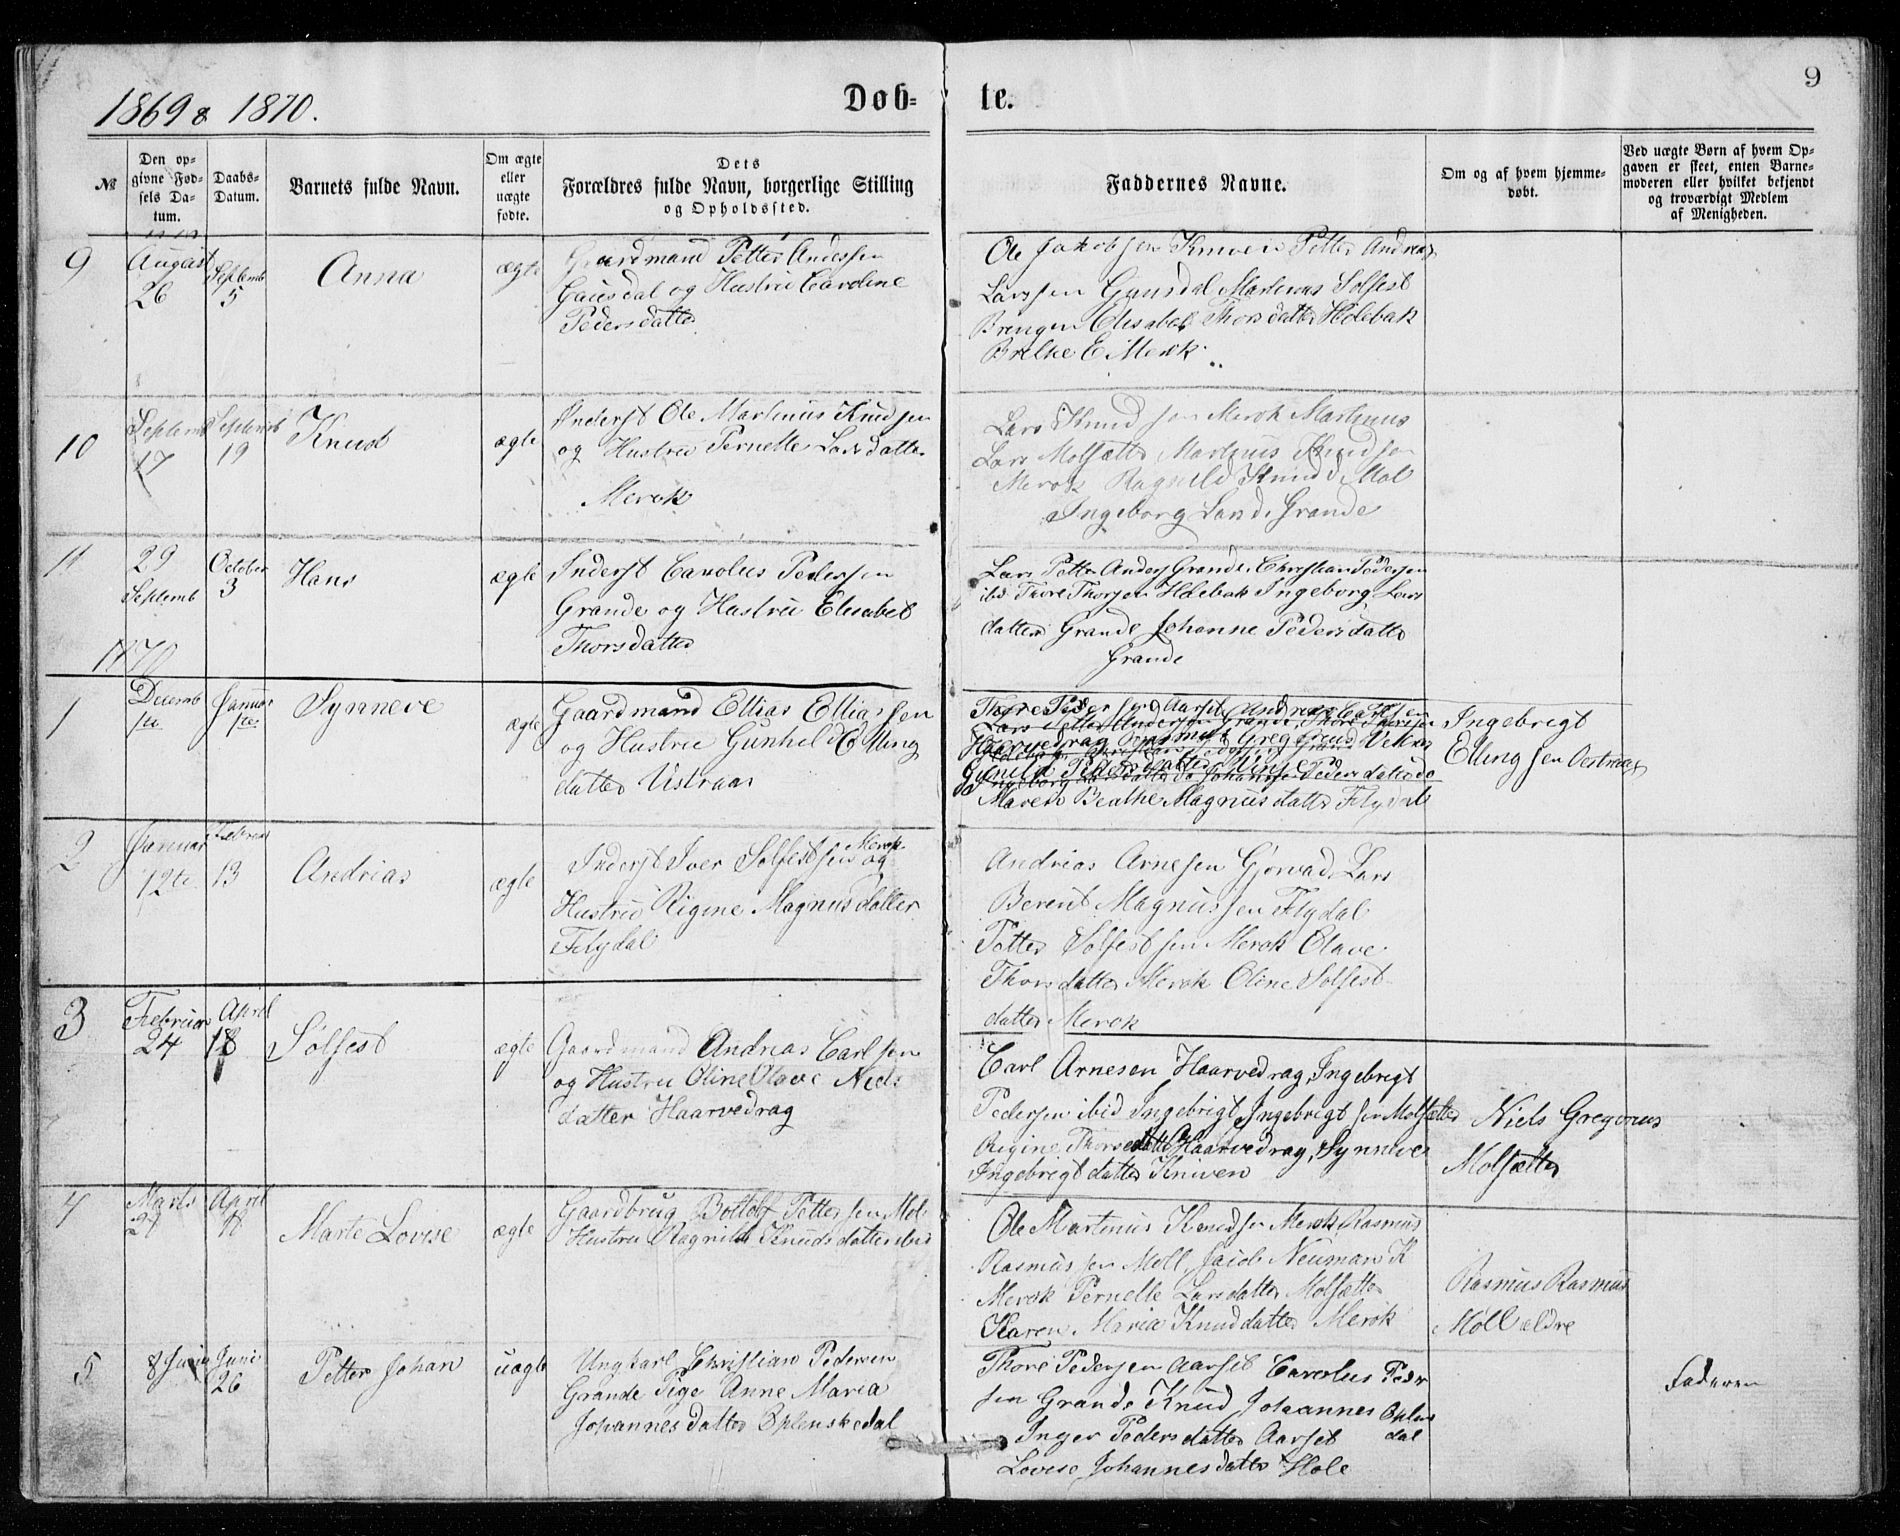 9
1869 & 1870.
Døb-
te.
№
Den op-
givne Fød-
sels Da-
tum.
Daabs-
Datum.
Barnets fulde Navn.
Om ægte
eller
uægte
fødte.
Dets
Forældres fulde Navn, borgerlige Stilling
og Opholdssted.
Faddernes Navne.
Om og af hvem hjemme-
døbt.
Ved uægte Børn af hvem Op-
gaven er skeet, enten Barne-
moderen eller hvilket bekjendt
og troværdigt Medlem
af Menigheden.
9
August
26
Septemb
5
Anna
ægte
Gaardmand Petter Anderssen
Gausdal og Hustru Caroline
Pedersdatter
Ole Jakobsen Kniven Petter Andreas
Larssen Gausdal Martinus Solfest
Elisabet Thorsdatter Holebak
E Merok
10
Septemb
17
Septemb
19
Knud
ægte
Inderst Ole Martinus Knudsen
og Hustru Pernelle Larsdatter
Merok
Lars Knudsen Merok Martinus
Lars Molsætter Martinus Knudsen
Merok Ragnild Knudsd Mol
Ingeborg Larsd. Grande
11
29
Septemb
October
3
Hans
ægte
Inderst Carolus Pederssen
Grande og Hustru Elisabet
Thorsdatter
Lars Petter Anders Grande, Christian Pedersen
ibd Thore Thorsen Holebak Ingeborg Lars
datter Grande Johanne Pedersdatter
Grande
1870
1
Decemb
Januar
Synneve
ægte
Gaardmand Ellias Elliassen
og Hustru Gunhild Elling
datter Vistraas
Thore Pedersen Aarset Andreas Carlsen
Haarvedrag Rasmus Gregorius
Gunild Pedersdatter
Maren Beathe Magnusdatter Flydal
Ingebrigt
Ellingsen
2
Januar
12te
Februar
13
Andrias
ægte
Inderst Iver Solfestsen Merok og
Hustru Rigine Magnusdatter
Flydal
Andrias Arnesen Gjørvad, Lars
Berent Magnussen Flydal
Petter Solfestsen Merok Olave
Thorsdatter Merok Oline Solfest-
datter Merok
3
Februar
24
April
18
Solfest
ægte
Gaardmand Andrias Carlsen
og Hustru Oline Olave Niels
datter Haarvedrag
Carl Arnesen Haarvedrag, Ingebrigt
Pedersen ibid Ingebrigt Ingebrigtsen Molsætter
Rigine Thorsdatter Haarvedrag, Synneve
Ingebrigtdatter Kniven
Niels Gregorius
Molsætter
4
Marts
27
April
Marte Lovise
ægte
Gaardbrug Bottolf Pettersen Mol
Hustru Ragnild Knudsdatter ibid
Ole Martinus Knudsen Merok Rasmus
Rasmussen Moll, Jacob Neuman K
Merok Pernelle Larsdatter Molsætter
Karen Maria Knuddatter Merok
Rasmus Rasmus
Moll ældre
5
8 Juni
Juni
26
Petter Johan
uægte
Ungkarl Christian Pedersen
Grande Pige Anne Maria
Johannesdatter Oplenskedal
Thore Pedersen Aarset Carolus Peder
sen Grande Knud Johannes Oplens
dal
Inger Pedersdatter Aarset
Lovise Johannesdatter Hole
Faderen